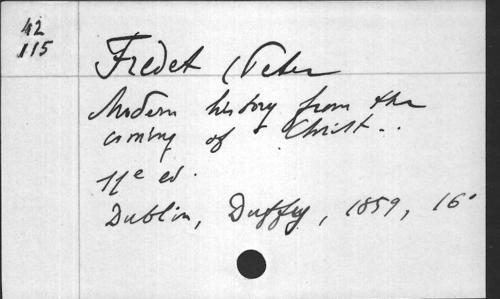 42
115
Fredet (Peter
Modern history from the
coming of Christ..
11e ed.
Dublin, Duffey, 1859, 16°